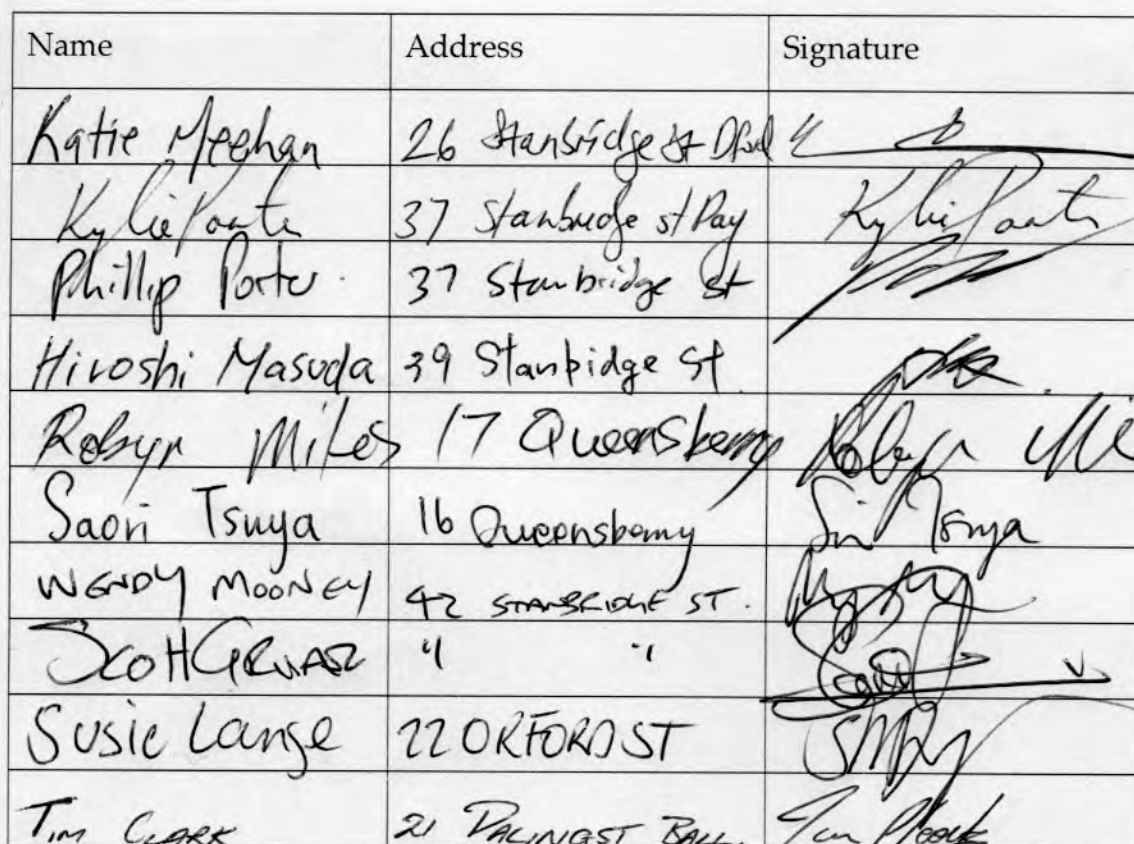 Name Address Signature
Katie Meehan 26 Stanbridge St
Kylie Porter 37 Stanbridge st Day Kylie Porter
Phillip Porter 37 Stanbridge St
Hiroshi Masuda 39 Stanbidge St
Robyn Miles 17 Queensberry Robyn
Saori Tsuya 16 Queensberry Tsuya
WENDY MOONEY 42 STANBRIDGE ST.
Scott " "
Susie Lange 22 ORFORD ST
Tim CLARK 21